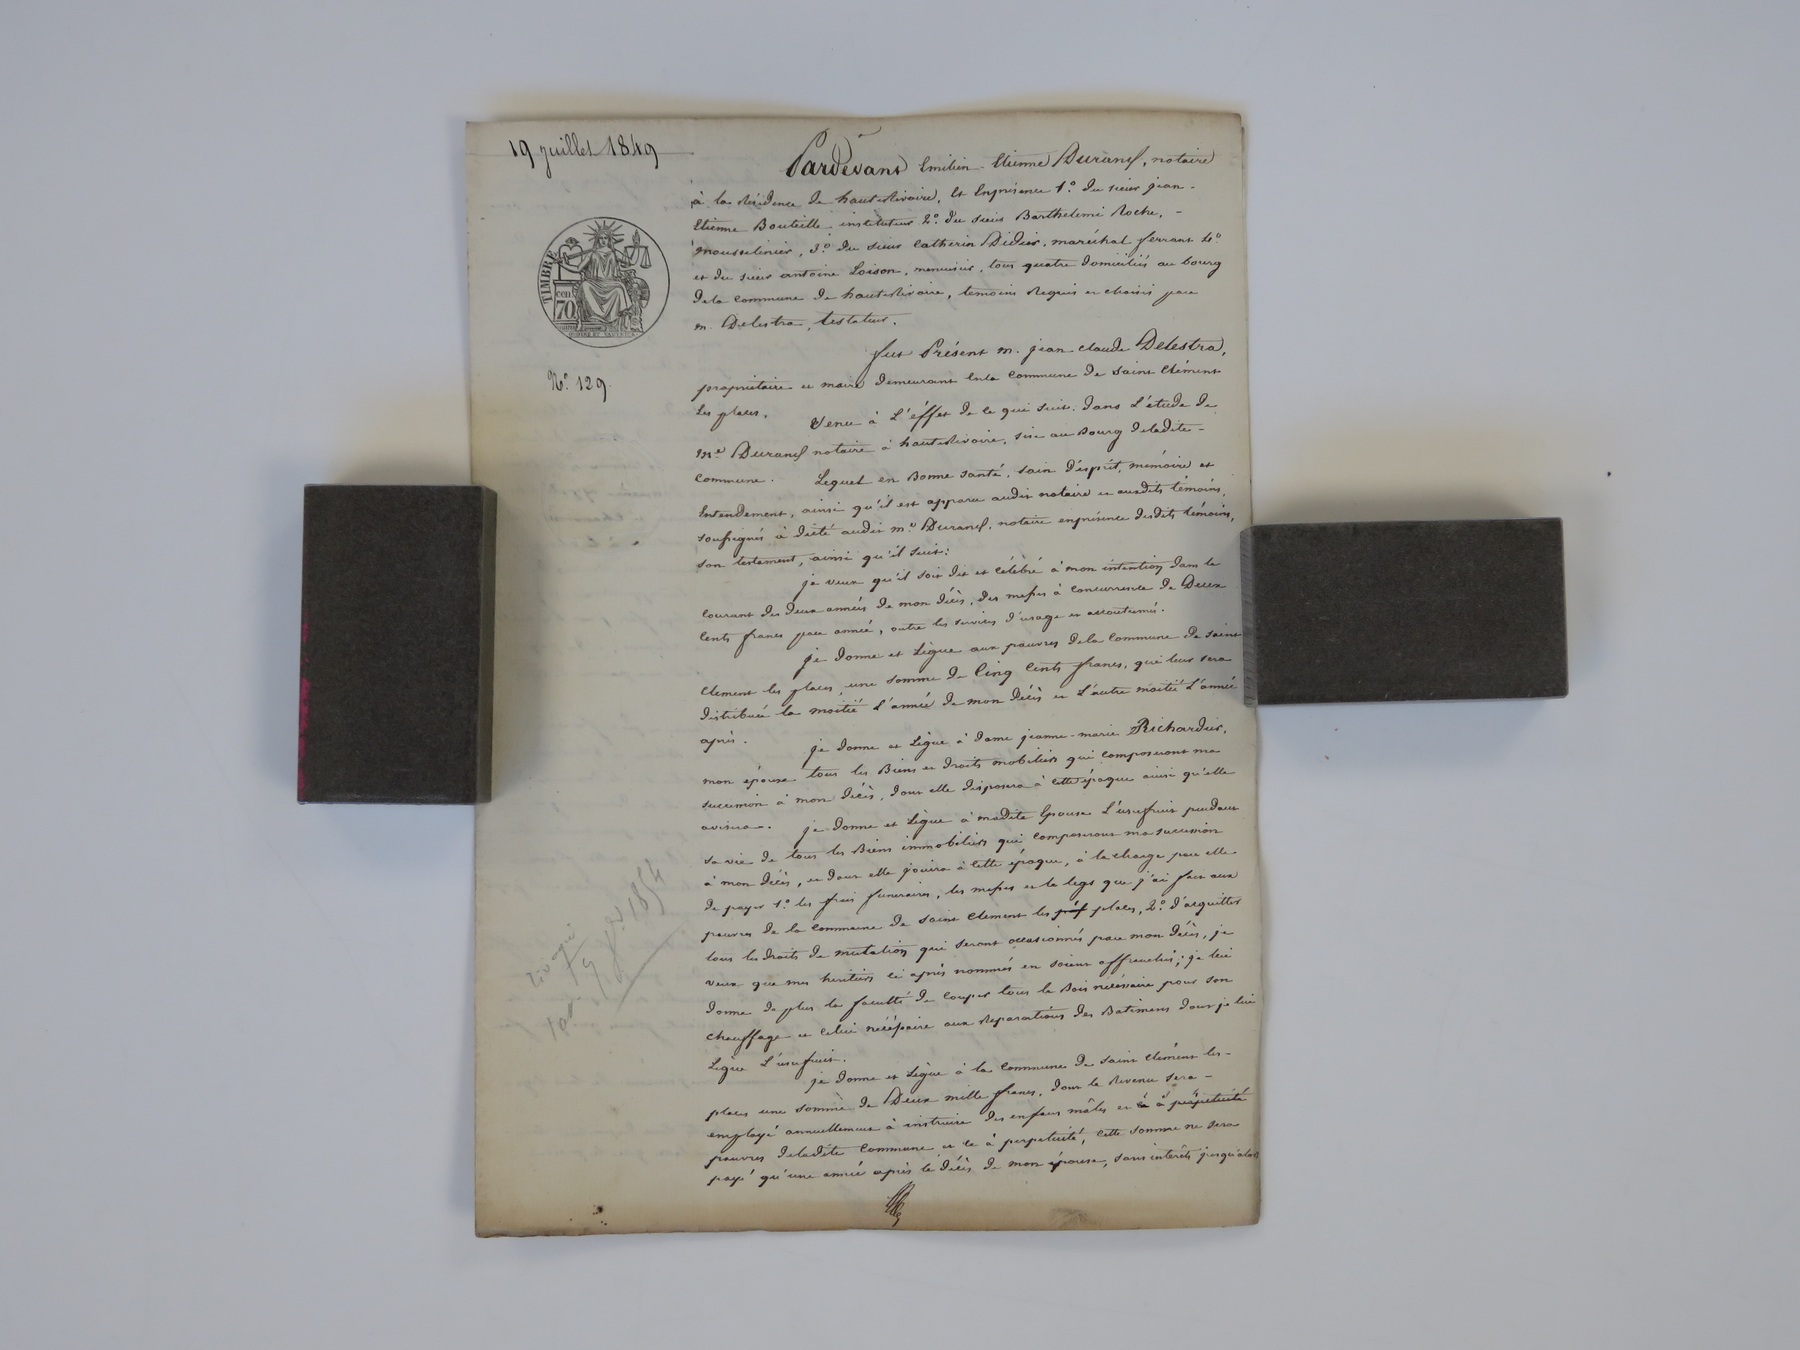 19 juillet 1849
Pardevant Emilien-Etienne Durand, notaire
à la Résidence de hauterivoire, Et Enprésence 1.° du sieur jean-
Etienne Bouteille instituteur 2.° du sieur Barthelemi Roche,-
mousselinier, 3.° du sieur Catherin Didier, maréchal ferrant 4.°
et du sieur antoine Loison, menuisier, tous quatre domiciliés au bourg
dela Commune de hauterivoire, temoins Requis et choisis par
m. Delestra, testateur.
TIMBRE
70
fut Présent m. jean claude Delestra,
N.° 129.
propriétaire et maire demeurant Enla Commune de saint Clément
les places.
Venu à L'éffet de ce qui suit. dans L'étude de
m.e Durand notaire à hauterivoire, sise au Bourg deladite-
Commune. Lequel en Bonne santé, sain d'ésprit, mémoire et
Entendement, ainsi qu'il est apparu audit notaire et auxdits témoins,
soussignés à dicté audit m.e Durand, notaire enprésence desdits témoins,
son testament, ainsi qu'il suit:
je veux qu'il soit dit et célébré à mon intention dans le
courant des deux années de mon décès, des messes à concurrence de Deux
Cents francs par année, outre les services d'usage et accoutumés.
je donne et Lègue aux pauvres dela Commune de saint
Clement les places, une somme de Cinq Cents francs, qui leur sera
distribuée la moitié L'année de mon décès et L'autre moitié L'année
après.
je donne et Lègue à dame jeanne-marie Richardier,
mon épouse tous les Biens et droits mobiliers qui composeront ma
succession à mon décès, dont elle disposera à cette époque ainsi qu'elle
avisera-.
je donne et Lègue à madite Epouse L'usufruit pendant
sa vie de tous les Biens immobiliers qui composeront ma succession
à mon décès, et dont elle jouira à cette époque, à la charge par elle
de payer 1.° les frais funeraires, les messes et le legs que j'ai fait aux
pauvres de la commune de saint Clement les places, 2.° d'acquitter
tous les droits de mutation qui seront occasionnés par mon décès, je
veux que mes heritiers ci après nommés en soient affranchis; je lui
donne de plus la faculté de couper tous le Bois nécéssaire pour son
chauffage et celui nécéssaire aux Réparations des Batimens dont je lui
Lègue L'usufruit.
1854
je donne et Lègue à la Commune de saint Clément les-
places une somme de Deux mille francs, dont le Revenu sera-
employé annuellement à instruire des enfans mâles et à à perpétuité
pauvres deladite Commune et ce à perpetuité, cette somme ne sera
payé qu'une année après le décès de mon épouse, sans intérêts jusqu'alors